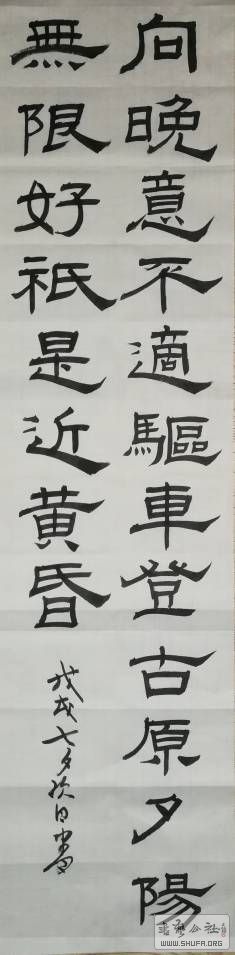 向晚意不適驅車登古原夕陽
無限好祇是近黄昏
戊戌七夕次日
書法公社
WWW.SHUFA.ORG